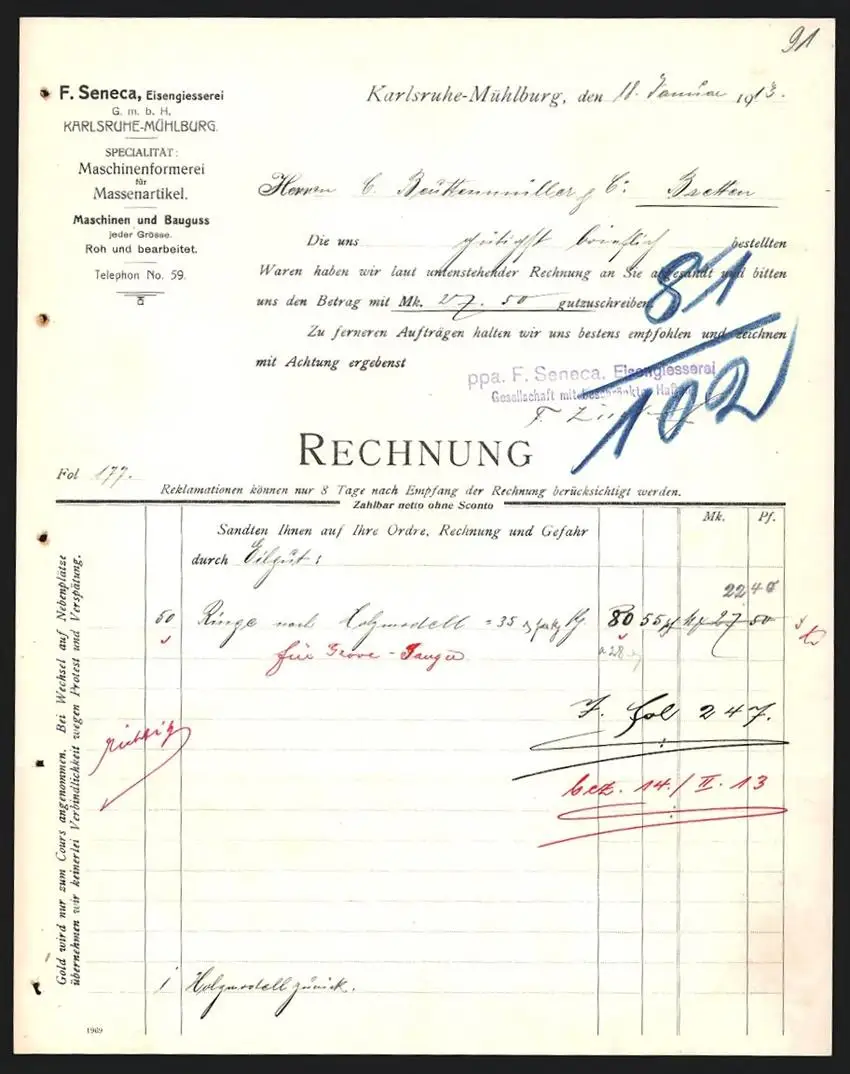 91
F. Seneca, Eisengiesserei
G. m. b. H.
KARLSRUHE-MÜHLBURG.
SPECIALITÄT:
Maschinenformerei
für
Massenartikel.
Maschinen und Bauguss
jeder Grösse.
Roh und bearbeitet.
Telephon No. 59.
Karlsruhe-Mühlburg, den 18. Januar 1913.
Herrn C. Beuttenmüller & C. Bretten
Die uns gütigst brieflich bestellten
Waren haben wir laut untenstehender Rechnung an Sie abgesandt und bitten
uns den Betrag mit Mk. 27. 50 gutzuschreiben.
Zu ferneren Aufträgen halten wir uns bestens empfohlen und zeichnen
mit Achtung ergebenst
81
102
ppa. F. Seneca, Eisengiesserei
Gesellschaft mit beschränkter Haftung
RECHNUNG
Fol 177.
Reklamationen können nur 8 Tage nach Empfang der Rechnung berücksichtigt werden.
Zahlbar netto ohne Sconto
Mk. Pf.
Sandten Ihnen auf Ihre Ordre, Rechnung und Gefahr
durch Eilgut:
22 40
50 Ringe nach Holzmodell = 35 80 55 27 50
für
a 28
F. fol 247.
richtig
bez. 14./II. 13
1 Holzmodell zurück.
Gold wird nur zum Cours angenommen. Bei Wechsel auf Nebenplätze
übernehmen wir keinerlei Verbindlichkeit wegen Protest und Verspätung.
1969